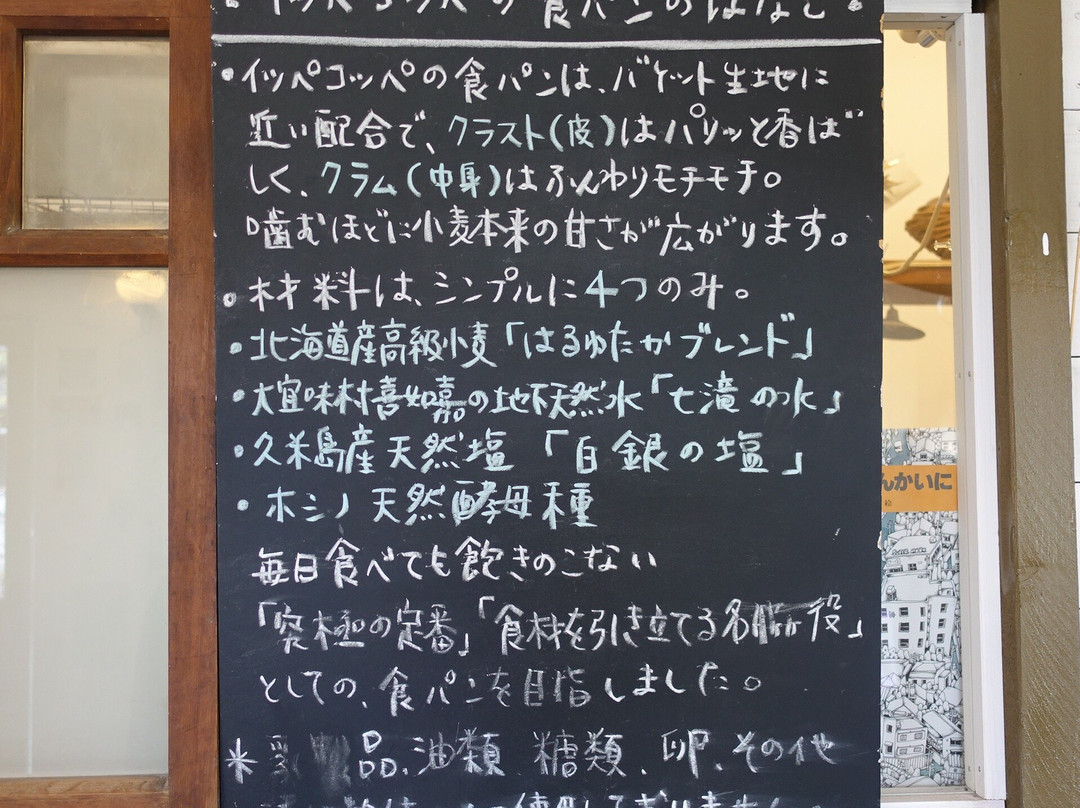 ・イッペコッペの食パンのはなし・
・イッペコッペの食パンは、バケット生地に
近い配合で、クラスト(皮)はパリッと香ば
しく、クラム(中身)はふんわりモチモチ。
噛むほどに小麦本来の甘さが広がります。
。材料は、シンプルに4つのみ。
・北海道産高級小麦「はるゆたかブレンド」
・大宜味村喜如嘉の地下天然水「七滝の水」
・久米島産天然塩「白銀の塩」
・ホシノ天然酵母種
毎日食べても飽きのこない
「究極の定番」「食材を引き立てる名脇役」
としての、食パンを目指しました。
＊乳製品、油類、糖類、卵、その他
使用しておりません
んかいに
絵